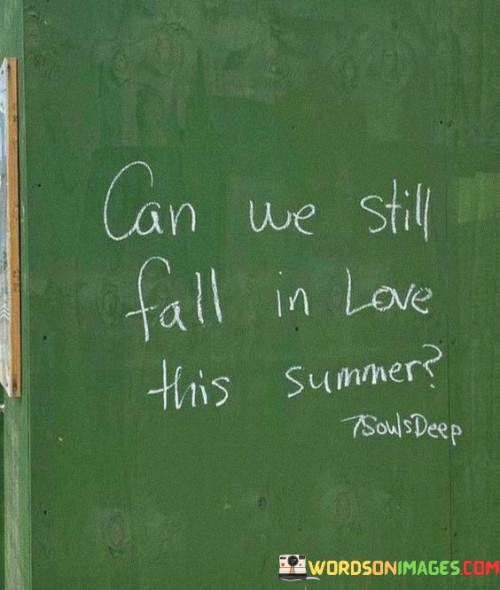 Can we still
fall in Love
this summer?
7SoulsDeep
WORDSONIMAGES.COM